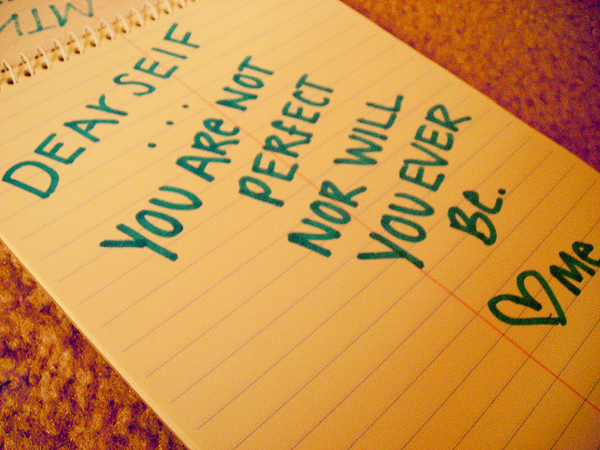 DEAR SELF
...
YOU ARe NOT
PERFECT
NOR WILL
YOU EVER
Be.
♡ Me